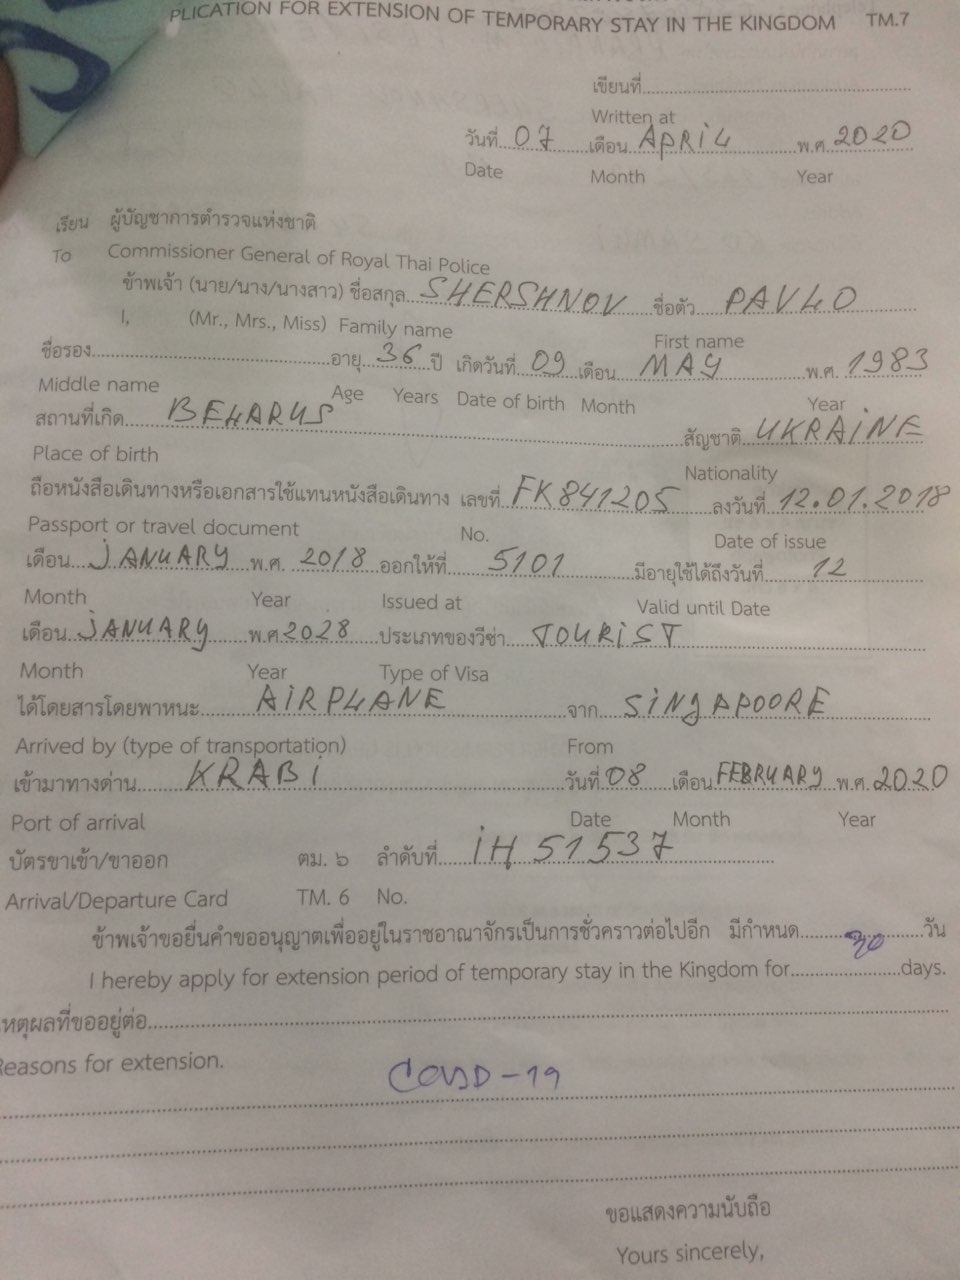 PLICATION FOR EXTENSION OF TEMPORARY STAY IN THE KINGDOM TM.7
เขียนที่
Written at
วันที่ 07 เดือน APRIL พ.ศ. 2020
Date Month Year
เรียน ผู้บัญชาการตำรวจแห่งชาติ
To Commissioner General of Royal Thai Police
ข้าพเจ้า (นาย/นาง/นางสาว) ชื่อสกุล SHERSHNOV ชื่อตัว PAVLO
I, (Mr., Mrs., Miss) Family name First name
ชื่อรอง อายุ 36 ปี เกิดวันที่ 09 เดือน MAY พ.ศ. 1983
Middle name Age Years Date of birth Month Year
สถานที่เกิด BELARUS สัญชาติ UKRAINE
Place of birth Nationality
ถือหนังสือเดินทางหรือเอกสารใช้แทนหนังสือเดินทาง เลขที่ FK841205 ลงวันที่ 12.01.2018
Passport or travel document No. Date of issue
เดือน JANUARY พ.ศ. 2018 ออกให้ที่ 5101 มีอายุใช้ได้ถึงวันที่ 12
Month Year Issued at Valid until Date
เดือน JANUARY พ.ศ 2028 ประเภทของวีซ่า TOURIST
Month Year Type of Visa
ได้โดยสารโดยพาหนะ AIRPLANE จาก SINGAPOORE
Arrived by (type of transportation) From
เข้ามาทางด่าน KRABI วันที่ 08 เดือน FEBRUARY พ.ศ. 2020
Port of arrival Date Month Year
บัตรขาเข้า/ขาออก ตม. ๖ ลำดับที่ IH 51537
Arrival/Departure Card TM. 6 No.
ข้าพเจ้าขอยื่นคำขออนุญาตเพื่ออยู่ในราชอาณาจักรเป็นการชั่วคราวต่อไปอีก มีกำหนด 30 วัน
I hereby apply for extension period of temporary stay in the Kingdom for days.
หตุผลที่ขออยู่ต่อ
Reasons for extension.
COVID-19
ขอแสดงความนับถือ
Yours sincerely,